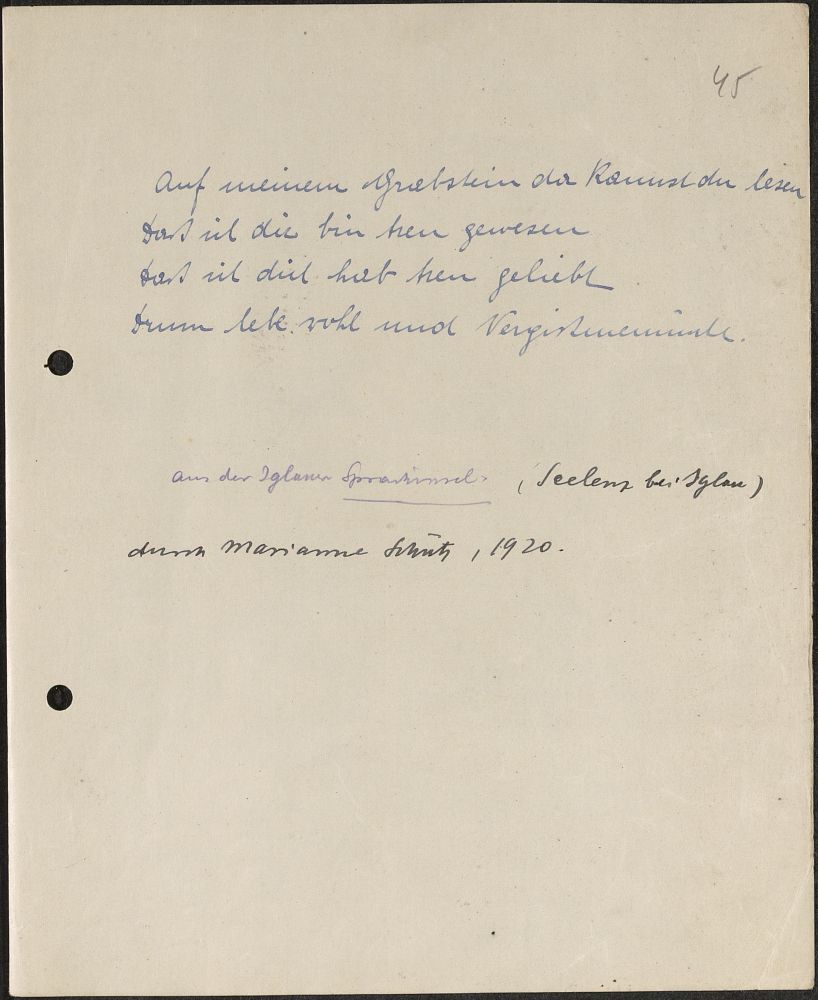 45
Auf meinem Grabstein da kannst du lesen
Dass ich dir bin treu gewesen
Dass ich dich hab treu geliebt
Drum lebe wohl und Vergissmeinnicht.
aus der Iglauer Sprachinsel (Seelenz bei Iglau)
durch Marianne Schütz, 1920.